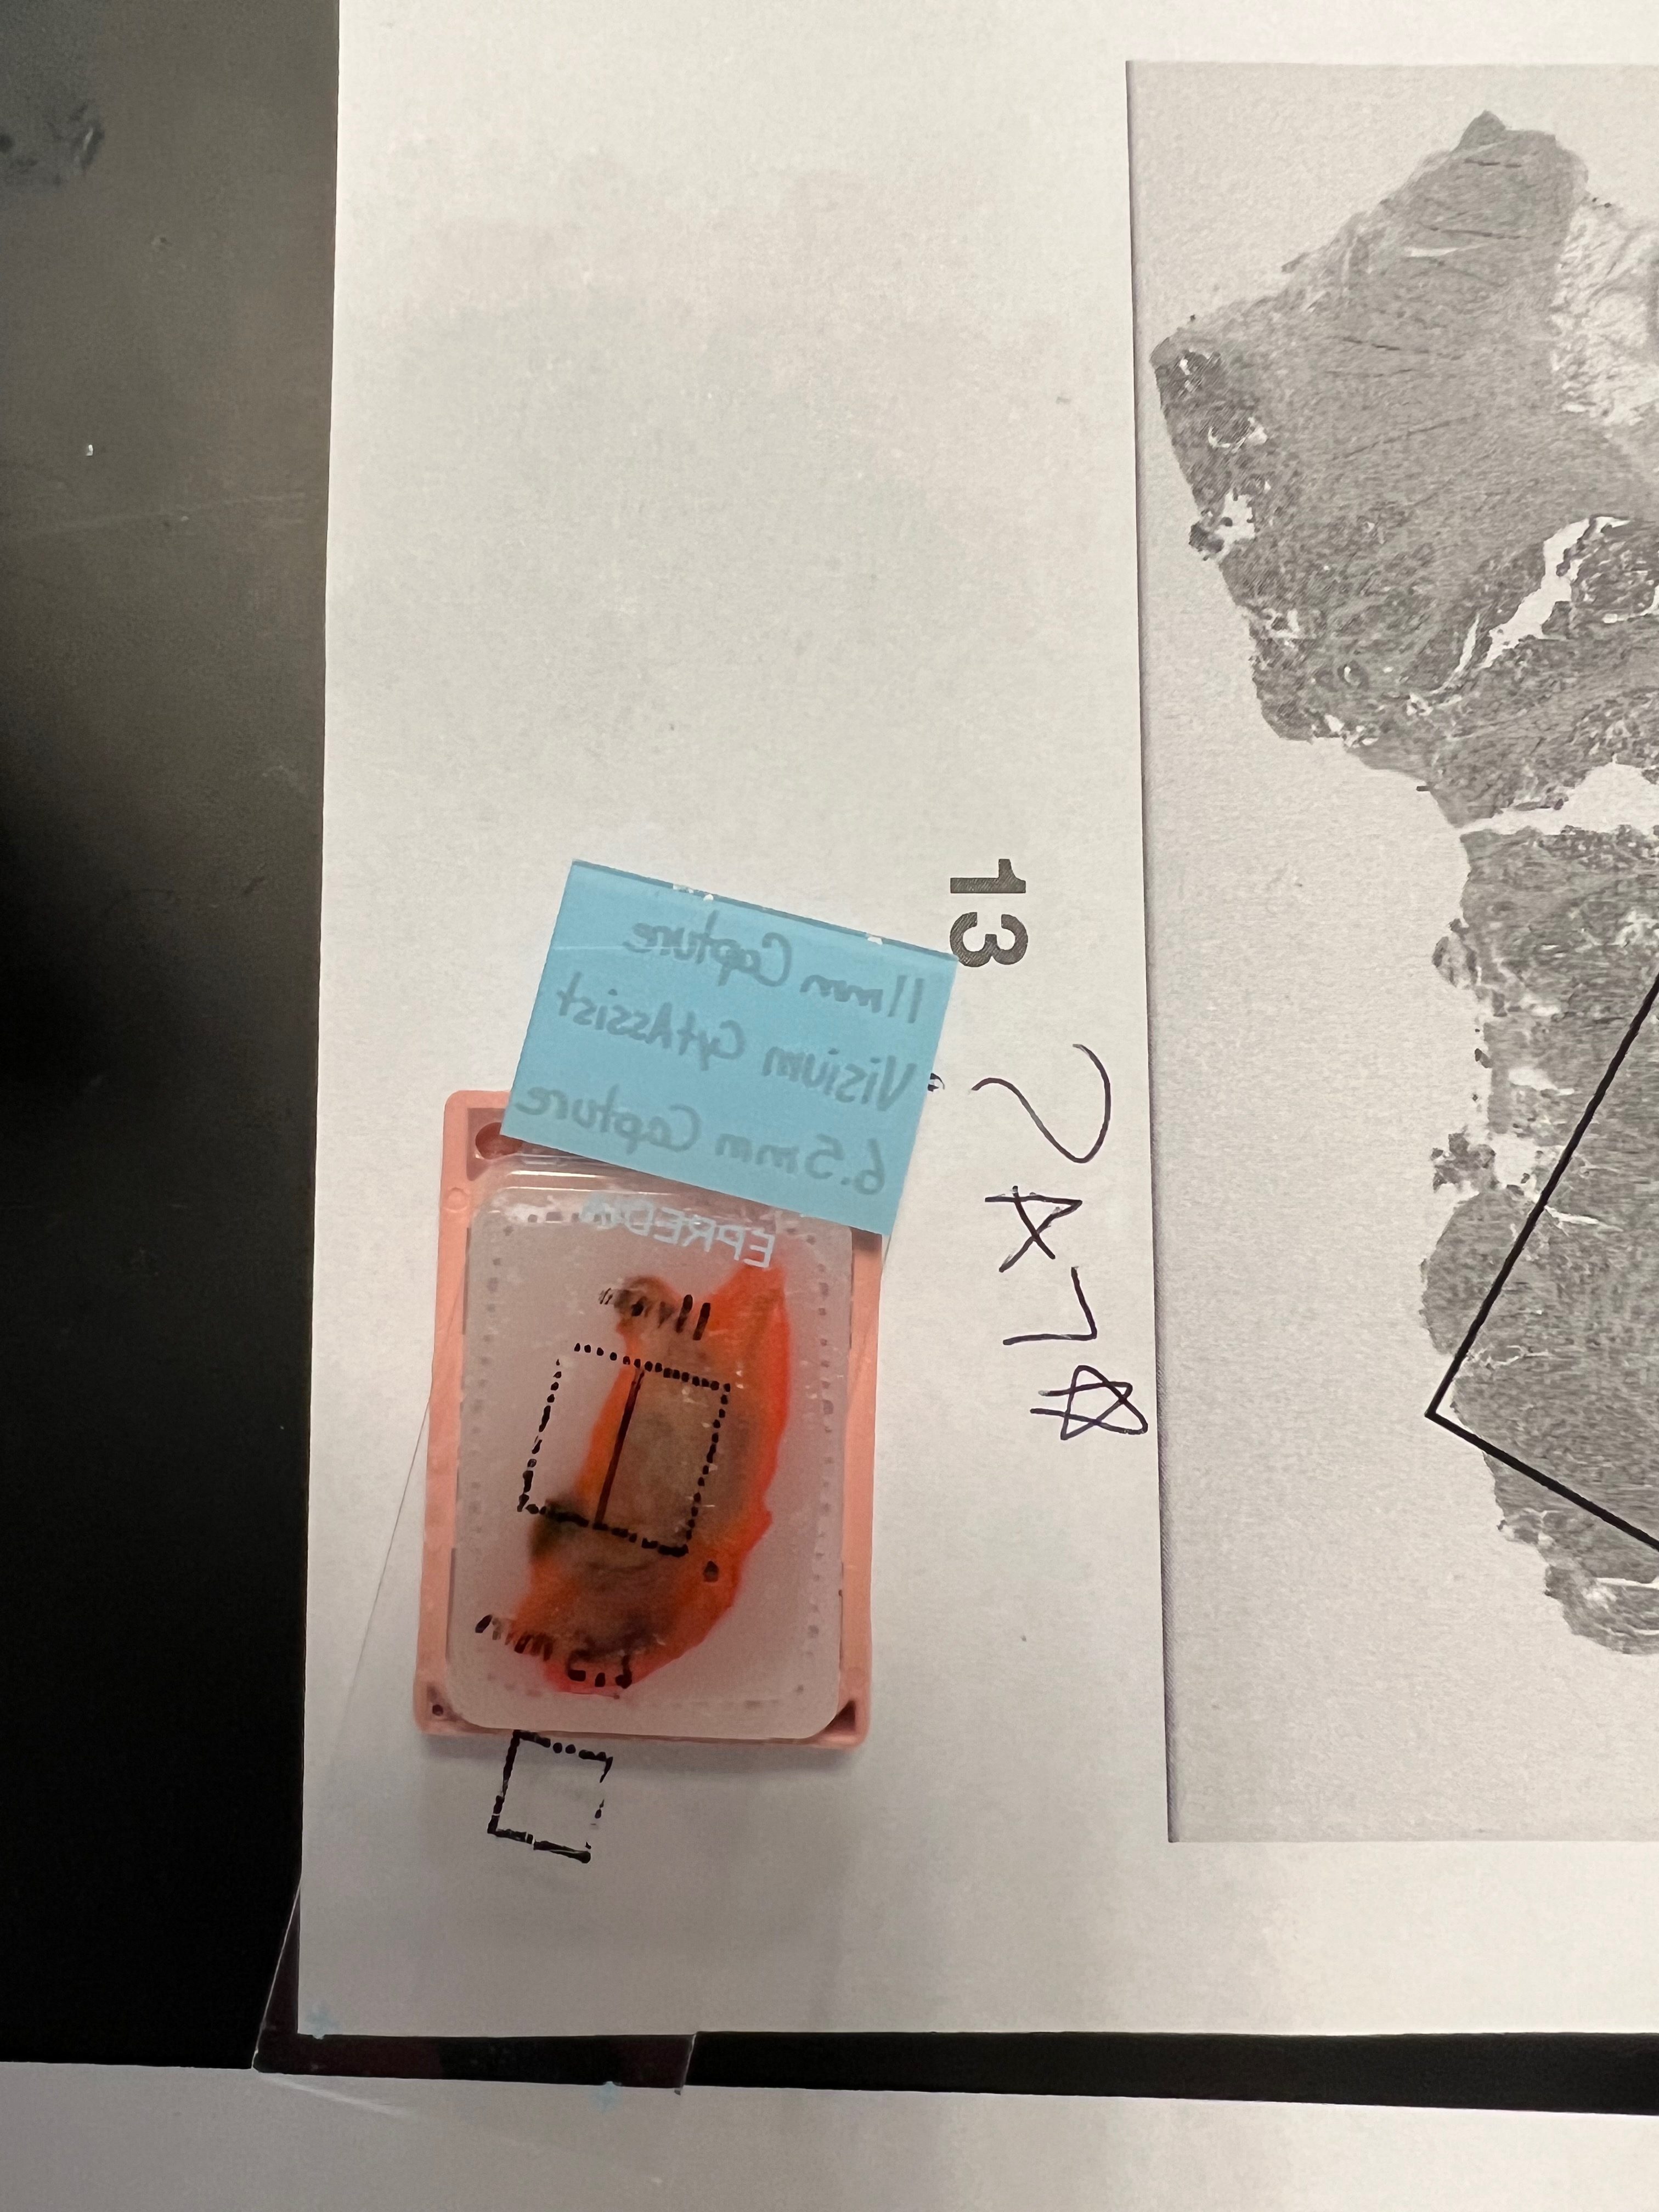 13
2A7
11mm Capture
Visium CytAssist
6.5mm Capture
EPREDIA
11mm